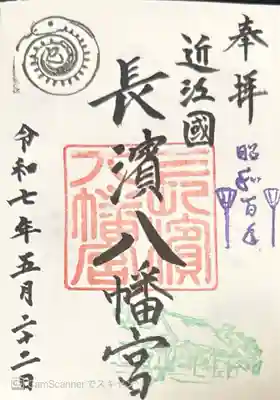 奉拝
昭和百年
近江國
長濱八幡宮
長濱八幡宮
令和七年五月二十二日
巳
CamScannerでスキャン